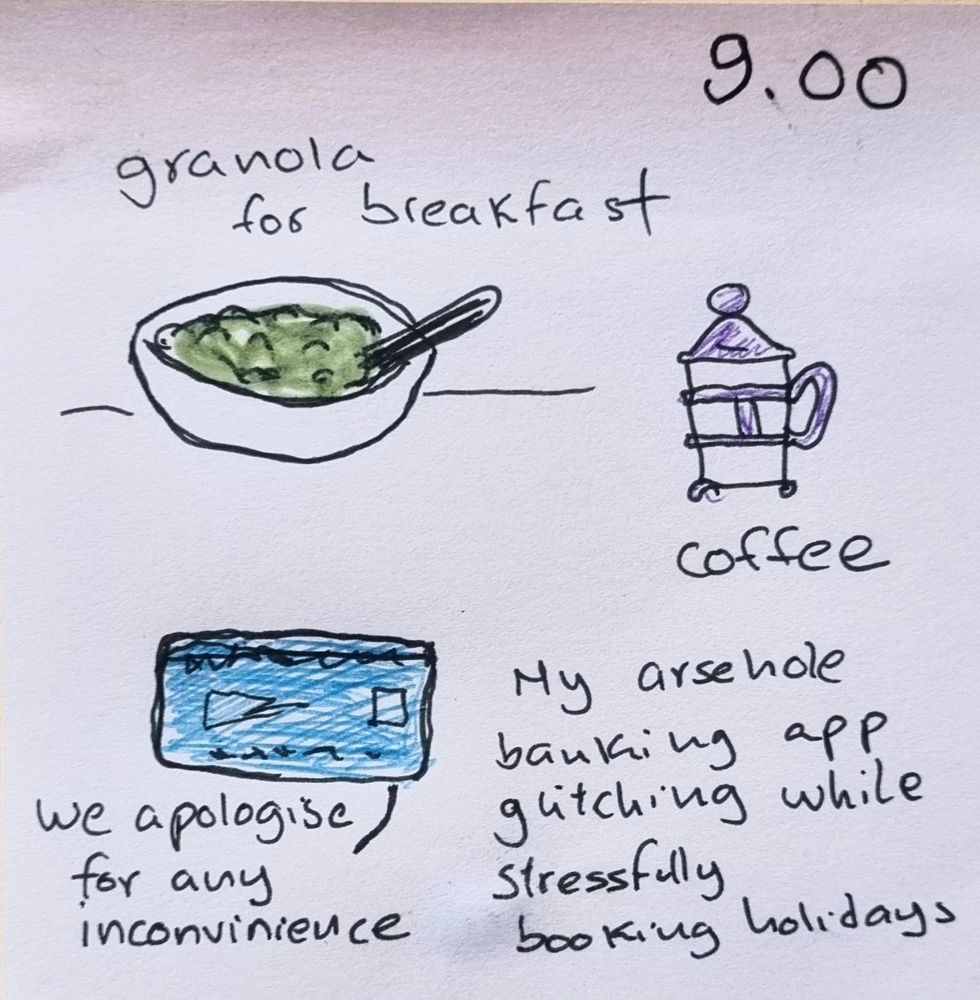 9.00
granola
for breakfast
coffee
we apologise
for any
inconvinience
My arsehole
banking app
glitching while
stressfully
booking holidays